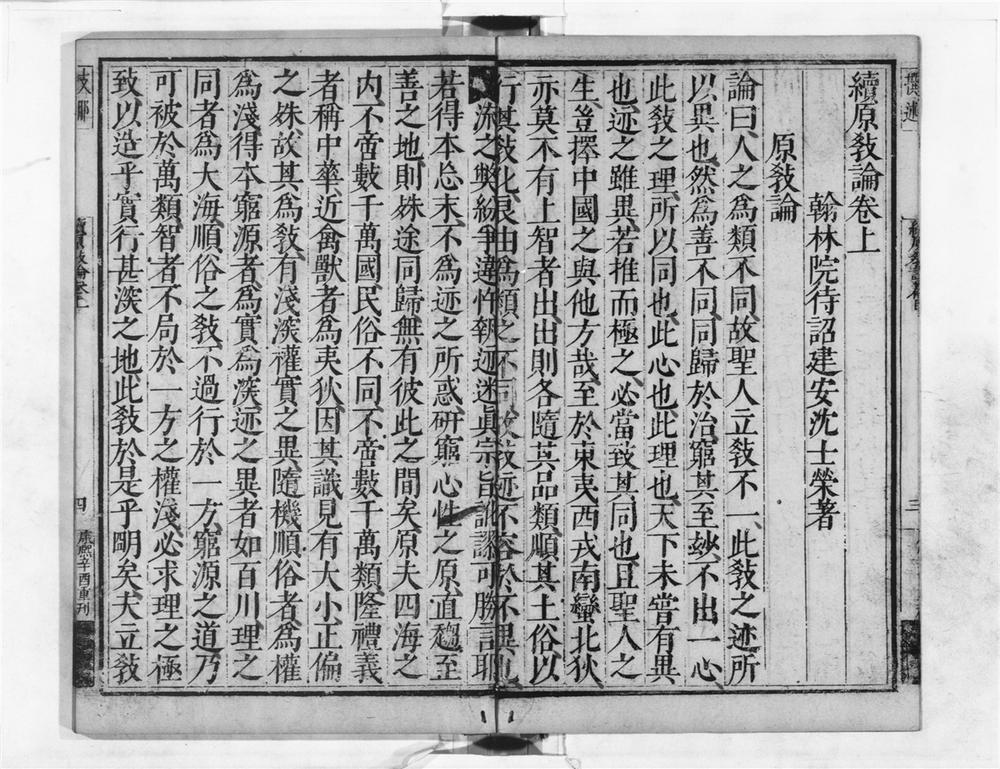 續原敎論卷上
翰林院待詔建安沈士榮著
原敎論
論曰人之爲類不同故聖人立敎不一此敎之迹所
以異也然爲善不同同歸於治窮其至玅不出一心
此敎之理所以同也此心也此理也天下未嘗有異
也迹之雖異若推而極之必當致其同也且聖人之
生豈擇中國之與他方哉至於東夷西戎南蠻北狄
亦莫不有上智者出出則各隨其品類順其土俗以
行其敎化良由爲類之不同故敎迹不容於不異也
流之獘紛爭違忤執迹迷眞宗旨訛謬可勝言耶
若得本忘末不爲迹之所惑硏窮心性之原直趨至
善之地則姝途同歸無有彼此之間矣原夫四海之
内不啻數千萬國民俗不同不啻數千萬類隆禮義
者稱中華近禽獸者爲夷狄因其識見有大小正偏
之姝故其爲敎有淺深權實之異隨機順俗者爲權
爲淺得本窮源者爲實爲深迹之異者如百川理之
同者爲大海順俗之敎不過行於一方窮源之道乃
可被於萬類智者不局於一方之權淺必求理之極
致以造乎實行甚深之地此敎於是乎明矣夫立敎
三
四
康熙辛酉重刊